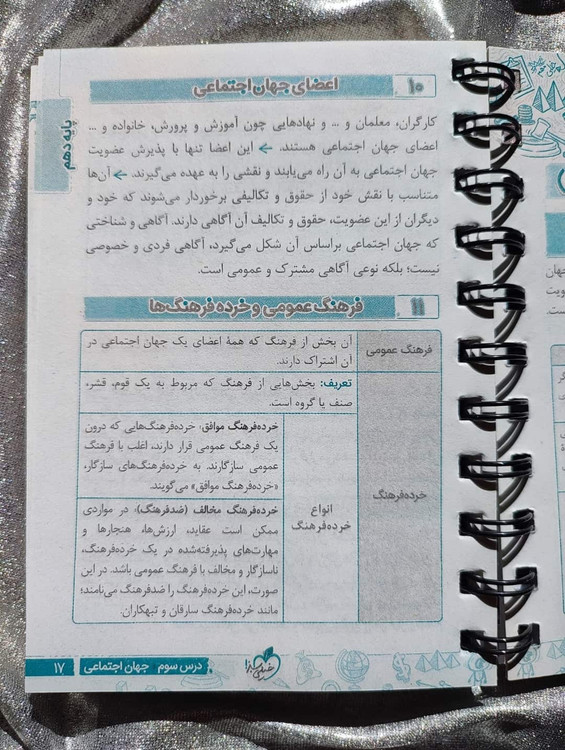 ۱۰ اعضای جهان اجتماعی
کارگران، معلمان و ... و نهادهایی چون آموزش و پرورش، خانواده و ...
اعضای جهان اجتماعی هستند. ← این اعضا تنها با پذیرش عضویت
جهان اجتماعی به آن راه می‌یابند و نقشی را به عهده می‌گیرند. ← آن‌ها
متناسب با نقش خود از حقوق و تکالیفی برخوردار می‌شوند که خود و
دیگران از این عضویت، حقوق و تکالیف آن آگاهی دارند. آگاهی و شناختی
که جهان اجتماعی براساس آن شکل می‌گیرد، آگاهی فردی و خصوصی
نیست؛ بلکه نوعی آگاهی مشترک و عمومی است.
۱۱ فرهنگ عمومی و خرده فرهنگ‌ها
فرهنگ عمومی
آن بخش از فرهنگ که همهٔ اعضای یک جهان اجتماعی در
آن اشتراک دارند.
خرده‌فرهنگ
تعریف: بخش‌هایی از فرهنگ که مربوط به یک قوم، قشر،
صنف یا گروه است.
انواع
خرده‌فرهنگ
خرده‌فرهنگ موافق: خرده‌فرهنگ‌هایی که درون
یک فرهنگ عمومی قرار دارند، اغلب با فرهنگ
عمومی سازگارند. به خرده‌فرهنگ‌های سازگار،
«خرده‌فرهنگ موافق» می‌گویند.
خرده‌فرهنگ مخالف (ضدفرهنگ): در مواردی
ممکن است عقاید، ارزش‌ها، هنجارها و
مهارت‌های پذیرفته‌شده در یک خرده‌فرهنگ،
ناسازگار و مخالف با فرهنگ عمومی باشد. در این
صورت، این خرده‌فرهنگ را ضدفرهنگ می‌نامند؛
مانند خرده‌فرهنگ سارقان و تبهکاران.
پایه دهم
خیلی سبز
درس سوم جهان اجتماعی ۱۷
جهان
ویت
ست.